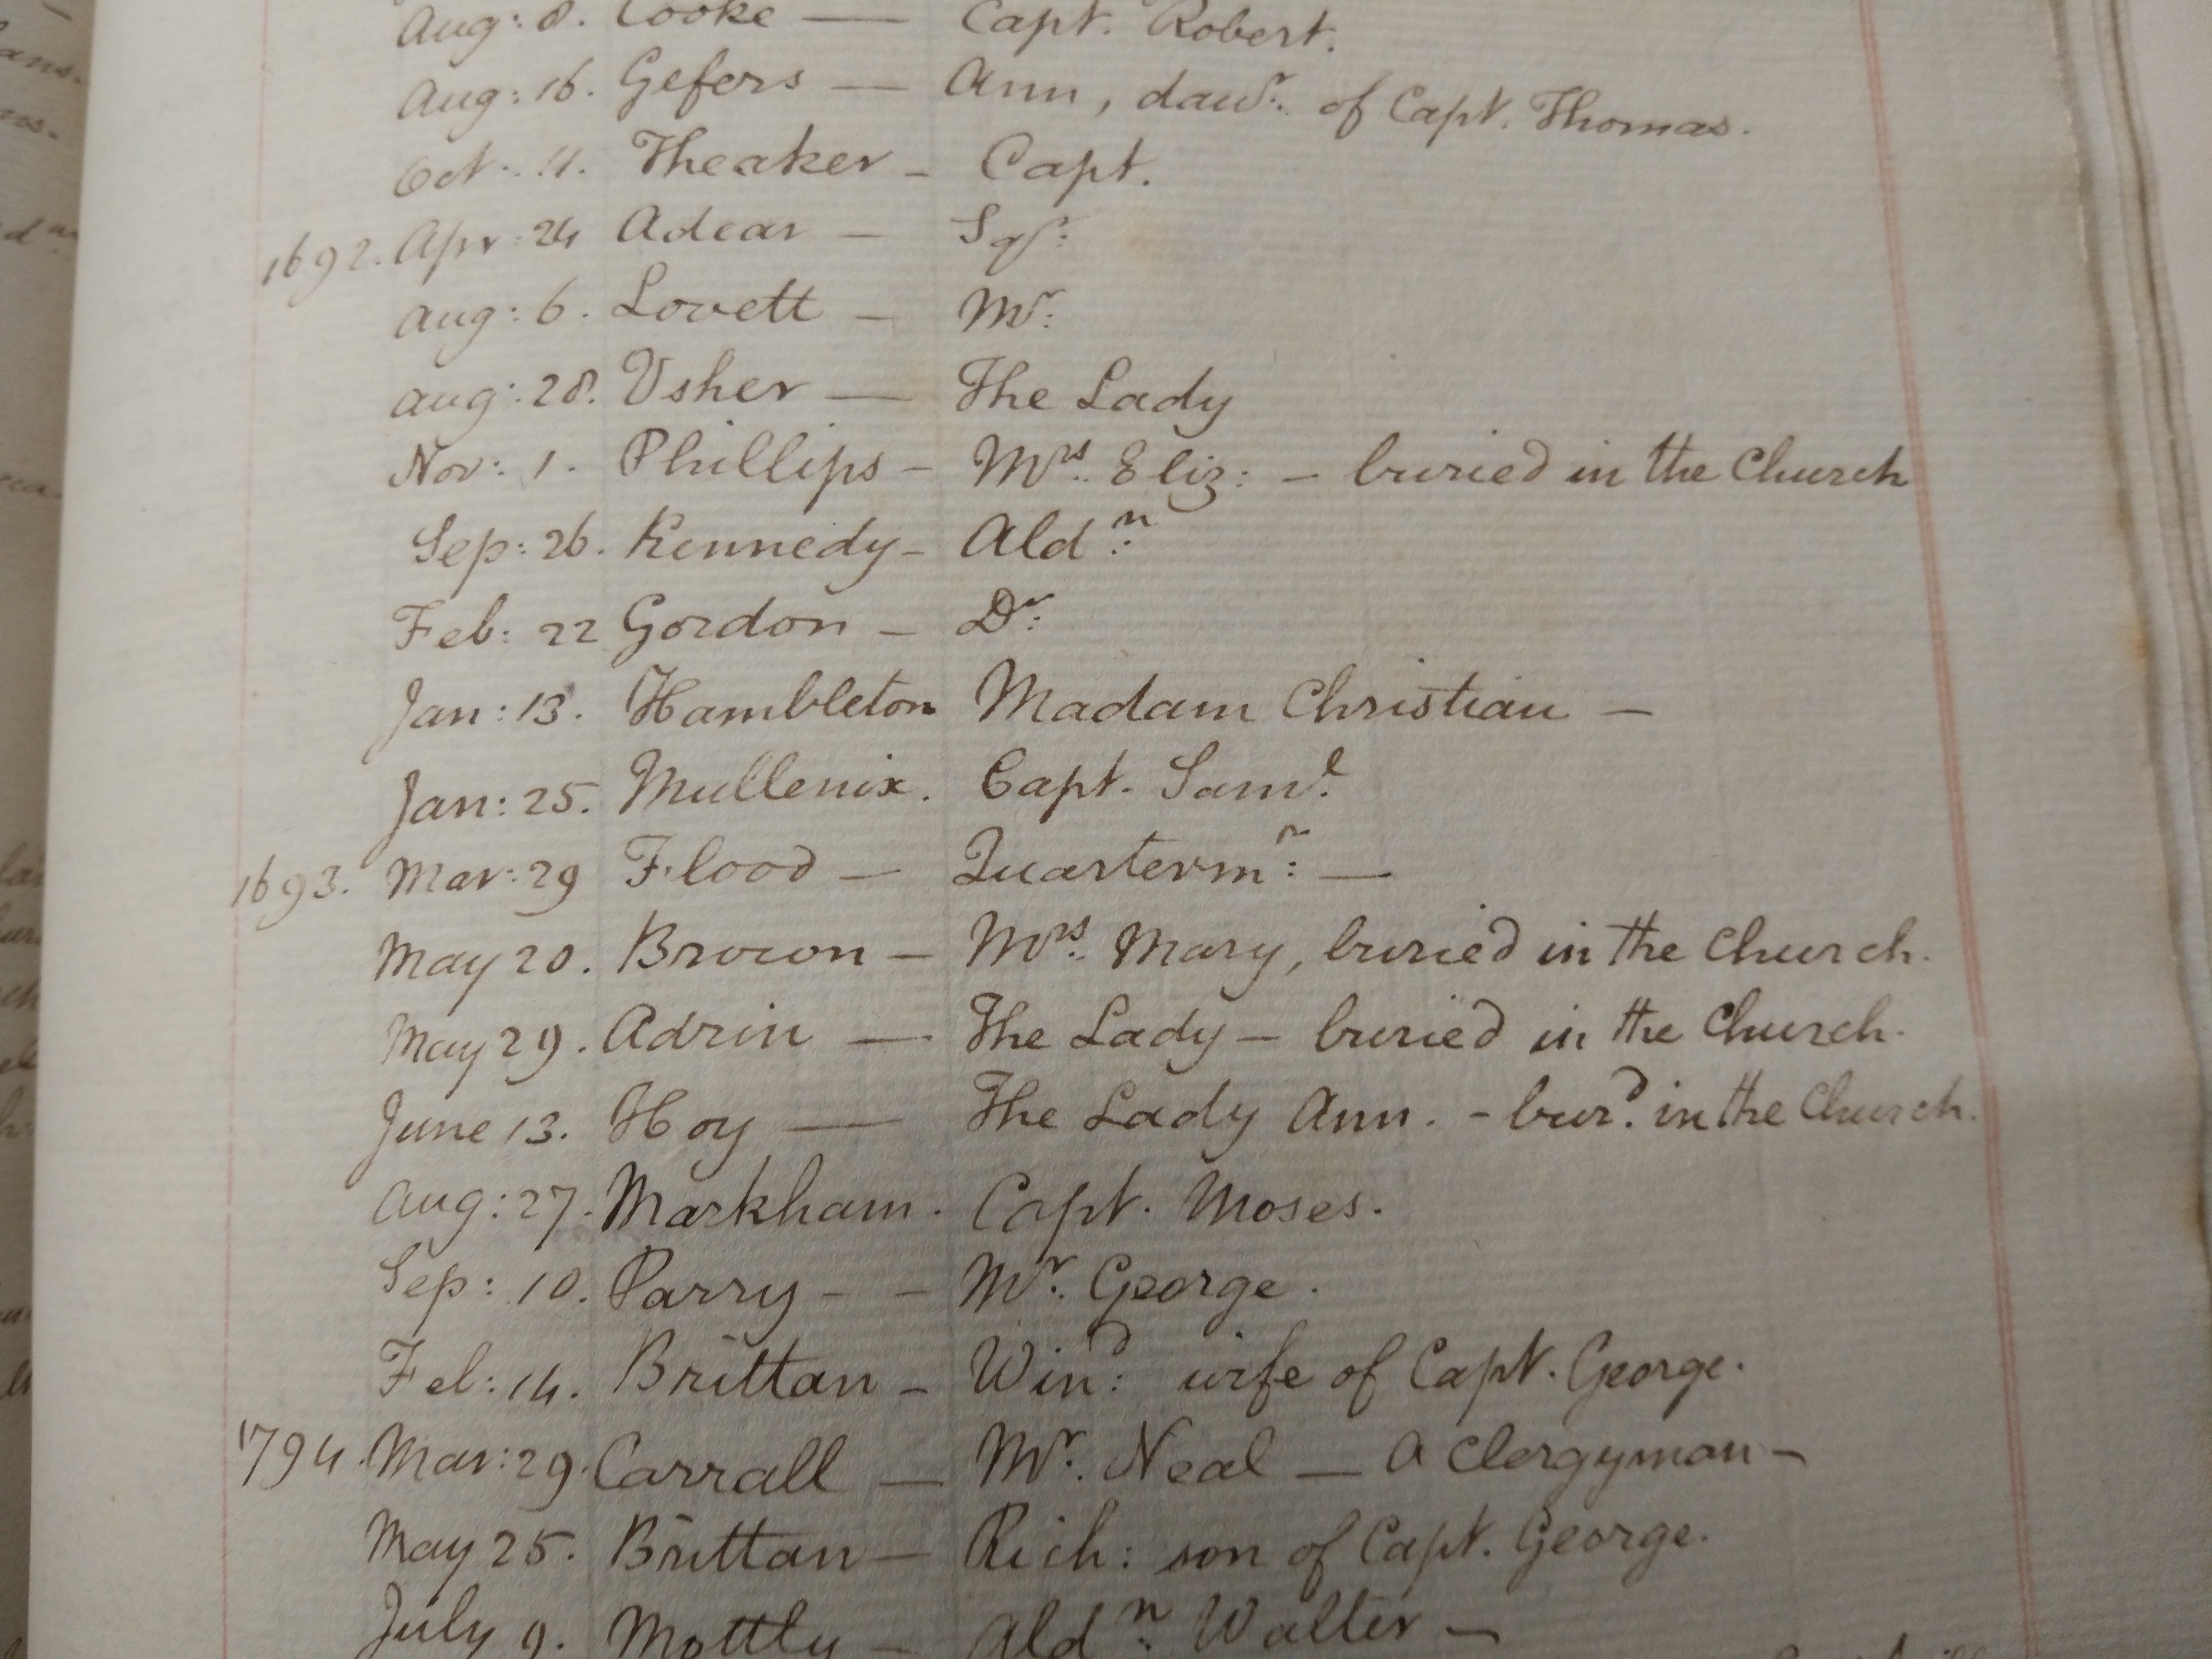 Aug: 8. Cooke — Capt. Robert.
Aug: 16. Gefers — Ann, dawr. of Capt. Thomas.
Oct. 11. Theaker - Capt.
1692. Apr: 24 Adear —
Aug: 6. Lovett — Mr:
Aug: 28. Usher — The Lady
Nov: 1. Phillips - Mrs. Eliz: - buried in the Church
Sep: 26. Kennedy - Aldn:
Feb: 22 Gordon - Dr:
Jan: 13. Hambleton Madam Christian —
Jan: 25. Mullenix. Capt. Saml.
1693. Mar: 29 Flood — Quartermr: —
May 20. Brown — Mrs. Mary, buried in the Church.
May 29. Adrin — The Lady - buried in the Church.
June 13. Hoy — The Lady Ann. - burd. in the Church.
Aug: 27. Markham. Capt. Moses.
Sep: 10. Parry - - Mr. George.
Feb: 14. Brittan - Wind: wife of Capt. George.
1794. Mar: 29. Carrall — Mr. Neal — a Clergyman -
May 25. Brittan — Rich: son of Capt. George.
July 9. Mottly - Aldn: Walter —